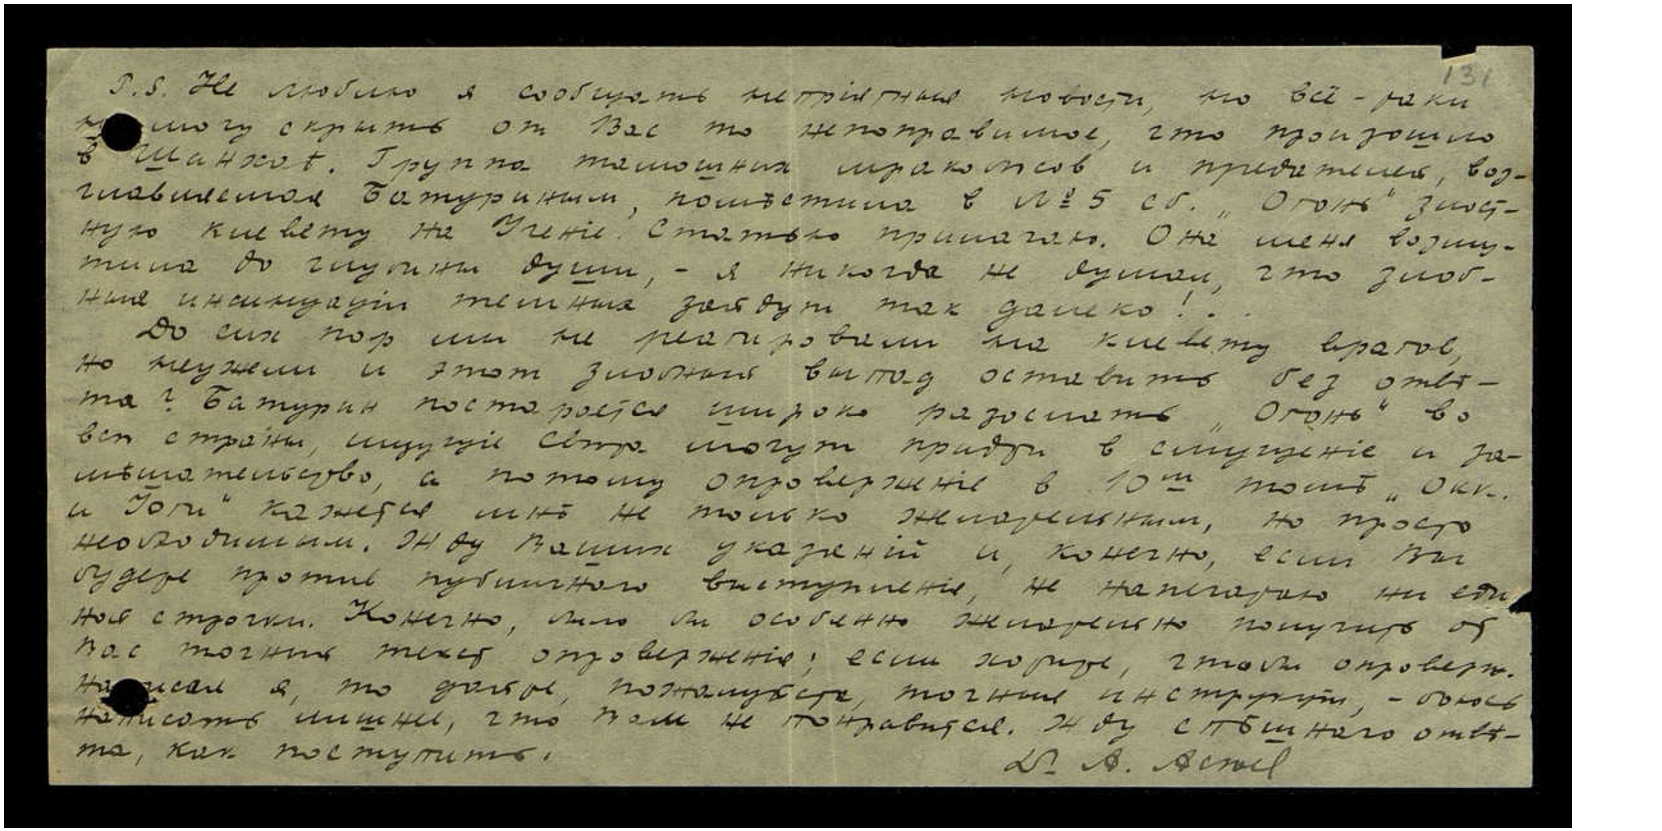 131
P.S. Не люблю я сообщать непріятныя новости, но всё-таки
не могу скрыть от Вас то непоправимое, что произошло
в Шанхаѣ. Группа тамошних мракобѣсов и предателей, воз-
главляемая Батуриным, помѣстила в № 5 сб. „Огонь" злост-
ную клевету на Ученіе. Статью прилагаю. Она меня возму-
тила до глубины души, - я никогда не думал, что злоб-
ныя инсинуаціи темных зайдут так далеко!..
До сих пор мы не реагировали на клевету врагов,
но неужели и этот злобный выпад оставить без отвѣ-
та? Батурин постарается широко разослать „Огонь" во
всѣ страны, ищущіе Свѣта могут придти в смущеніе и за-
мѣшательство, а потому опроверженіе в 10ом томѣ „Окк.
и Іоги" кажется мнѣ не только желательным, но просто
необходимым. Жду Ваших указаній и, конечно, если Вы
будете против публичного выступленія, не напечатаю ни еди
ной строчки. Конечно, было бы особенно желательно получить от
Вас точный текст опроверженія; если хотите, чтобы опроверж.
написал я, то дайте, пожалуйста, точныя инструкціи, - боюсь
написать лишнее, что Вам не понравится. Жду спѣшнаго отвѣ-
та, как поступить.
Dr. А. Асѣев